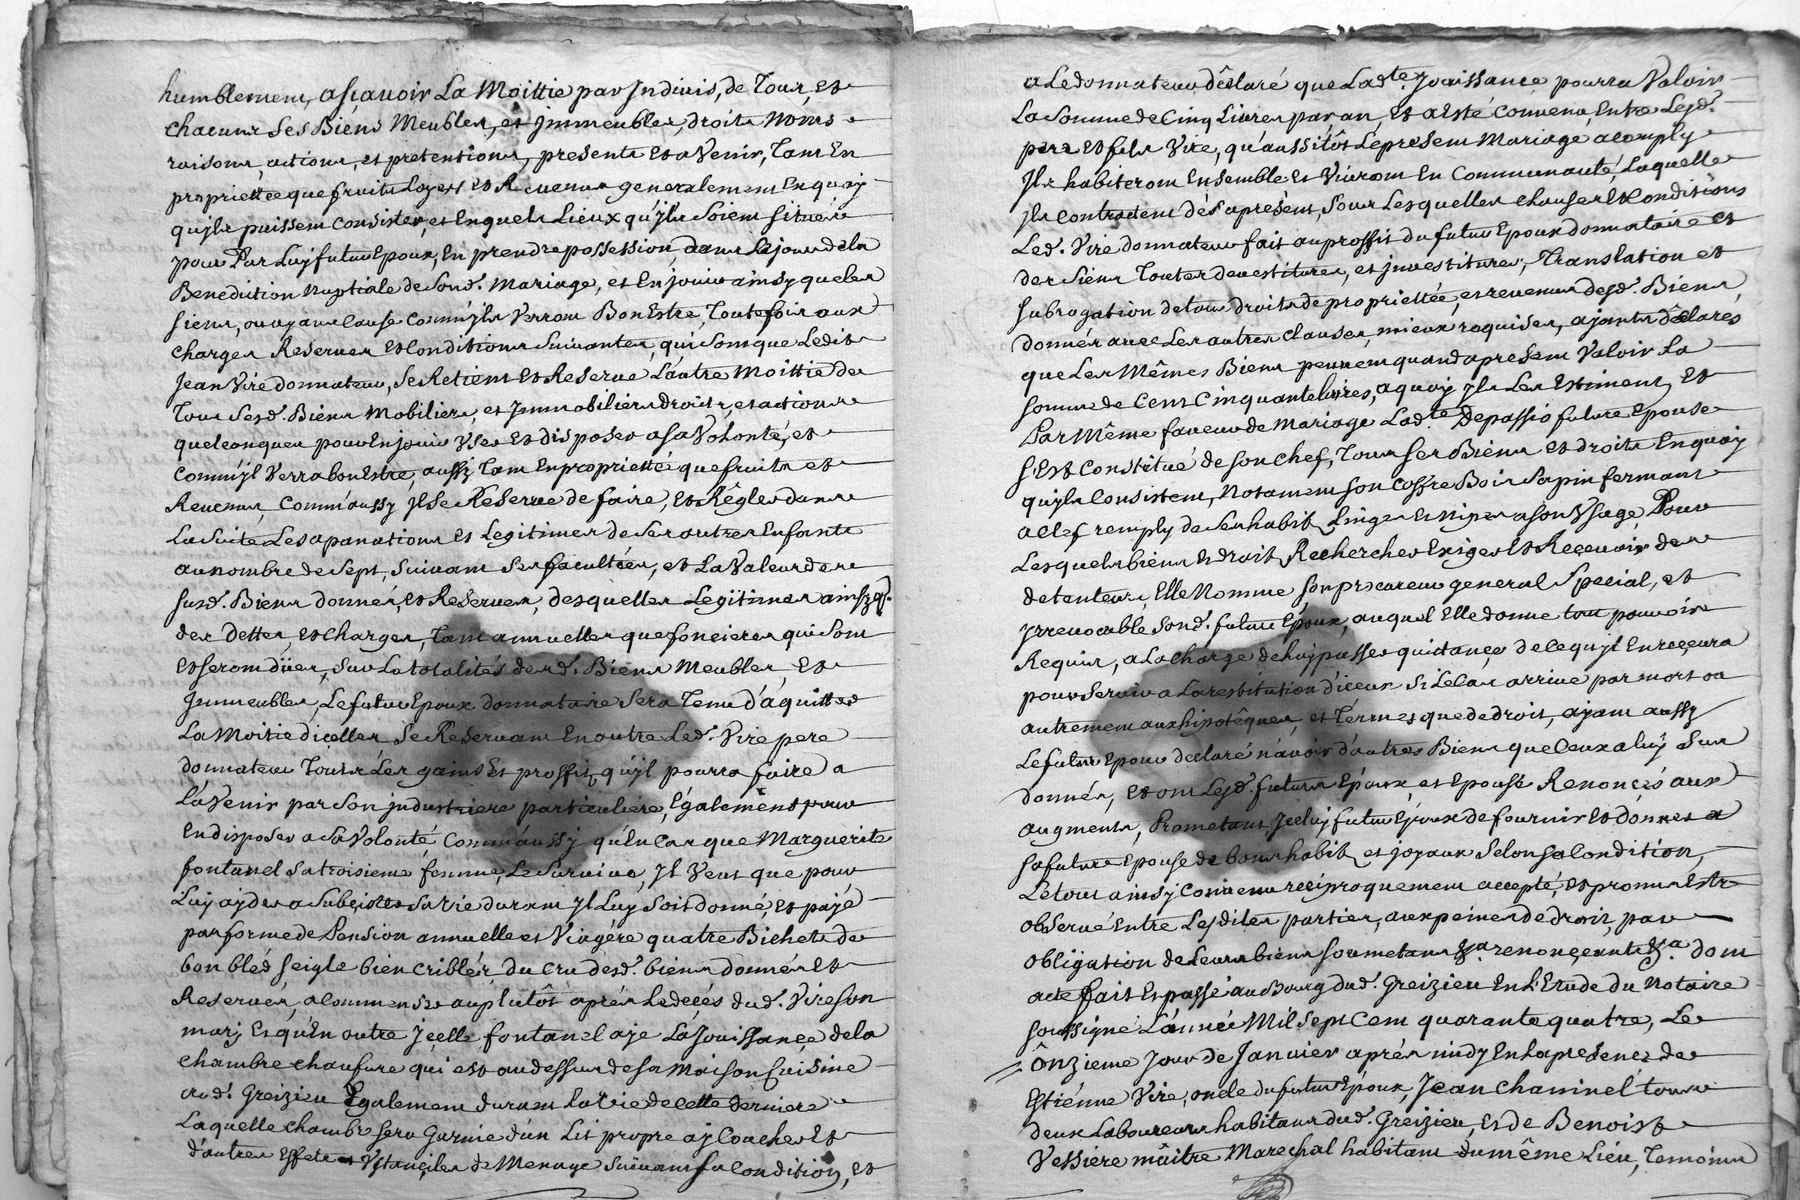 humblement, ascavoir La Moittie par Indivis, de Tous, et
chacuns Ses Biens Meubles, et Immeubles, droits Noms
raisons, actions, et pretentions, presents et a Venir, Tant En
propriettée que fruits Loyers et Revenus generalement En quoy
qu'ils puissent Consister, et En quels Lieux qu'ils Soient Situés
pour Par Luy futur Epoux, En prendre possession, dans Le jour de la
Benediction Nuptiale de Sond. Mariage, et En jouir ainsy que les
siens, ou ayant Cause Comm'ils Verront Bon Estre, Toutefois aux
charges Reserves et Conditions Suivantes, qui Sont que Ledit
Jean Vire donnateur, Se Retient et Reserve L'autre Moittie de
Tous Sesd. Biens Mobiliers, et Immobiliers droits, et actions
quelconques pour En jouir User et disposer a Sa Volonté, et
Comm'il Verra bon Estre, aussy Tant En propriettée que fruits et
Revenus, Comm'aussy Il Se Reserve de faire, et Régler dans
La Suite Les apanations et Legitimes de Ses autres Enfants
au nombre de Sept, Suivant Ses facultées, et La Valeur des
susd. Biens donnés, et Reservés, desquelles Legitimes ainsy q.
des Dettes, et Charges, Tant annuelles que foncieres qui Sont
et seront dües, Sur La totalités desd. Biens Meubles, et
Immeubles, Le futur Epoux donnataire Sera Tenu d'aquitter
La Moitie d'icelles Se Reservant En outre Led. Vire pere
donnateur Touts Les gains et proffits qu'il pourra faire a
L'avenir par Son industrie particuliere, Egalement pour
En disposer a Sa Volonté Comm'aussy qu'En Cas que Marguerite
fontanel Sa troisieme femme, Le Survive, Il Veut que pour
Luy ayder a Subcister Sa Vie durant Il Luy Soit donné, et payé
par forme de Pension annuelle et Viagére quatre Bichets de
bon bled Seigle bien criblés, du Cru desd. biens donnés et
Reservés, a Commencer au plutôt aprés Le decés dud. Vire Son
mary et qu'En outre Jcelle fontanel aye La Jouissance de la
Chambre Chaufure qui est au dessus de Sa Maison Cuisine
aud. Greizieu Egalement durant La Vie de Cette derniere
Laquelle chambre Sera Garnie d'un Lit propre a y Coucher et
d'autres Effets et Ustanciles de Menage Suivant Sa Condition, et
a Le donnateur déclaré que Lad.te Jouissance pourra Valoir
La Somme de Cinq Livres par an, Et a Esté Convenu, Entre Lesd.
pere et fils Vire, qu'aussitôt Le present Mariage acomply
Ils habiteront Ensemble et Vivront En Communauté, Laquelle
Ils Contractent dés apresent, Sous Lesquelles Clauses et Conditions
Led. Vire donnateur fait au proffit du futur Epoux donnataire et
des Siens Toutes devestitures, et investitures, Translation et
Subrogation de tous droits de propriettée, et revenus desd. Biens
donnés avec Les autres Clauses, mieux requises, ajants déclarés,
que Les Mêmes Biens peuvent quand apresent Valoir La
Somme de Cent Cinquante Livres, a quoy Ils Les Estiment, et
Par Même faveur de Mariage Lad.te Depassio future Epouse
S'est Constitué de Son Chef, Tous Ses Biens et droits En quoy
qu'ils Consistent, Notament Son Coffre Bois Sapin fermant
a Clef remply de Ses habits Linges et Nipes a Son Usage, Pour
Lesquels biens et droits Rechercher Exiger et Reçevoir des
detenteurs, Elle Nomme Son procureur general Special, et
Irrevocable Sond. futur Epoux, auquel Elle donne tout pouvoir
Requis, a La Charge de Luy passer quitance de Ce qu'il En reçevra
pour Servir a La restitution d'iceux Si Le Cas arrive par mort ou
autrement aux hipotêques, et Termes que de droit, ajant aussy
Le futur Epoux declaré n'avoir d'autres Biens que Ceux a Luy Sus
donnés, et ont Lesd. futurs Epoux, et Epouse Renonçés aux
augments, Promettant Jceluy futur Epoux de fournir et donner a
Sa future Epouse de bons habits et joyaux Selon Sa Condition,
Le tout ainsy Convenu reciproquement accepté, et promis Estre
observé Entre Lesdites parties, aux peines de droit, par
obligation de Leurs biens Soumetans &a renonçeants &a dont
acte fait et passé au Bourg dud. Greizieu En L'Etude du Notaire
soussigné L'année Mil Sept Cent quarante quatre, Le
Onzieme Jour de Janvier aprés midy En La presence de
Estienne Vire, oncle du futur Epoux, Jean Chaninel tous
deux Laboureurs habitans dud. Greizieu, et de Benoist
Vessiere mâitre Marechal habitant du même Lieu, Temoins